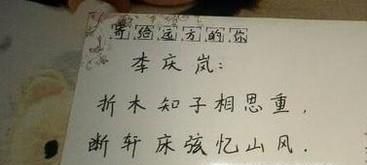 寄给远方的你
李庆岚：
折木知子相思重，
断轩床弦忆山风．